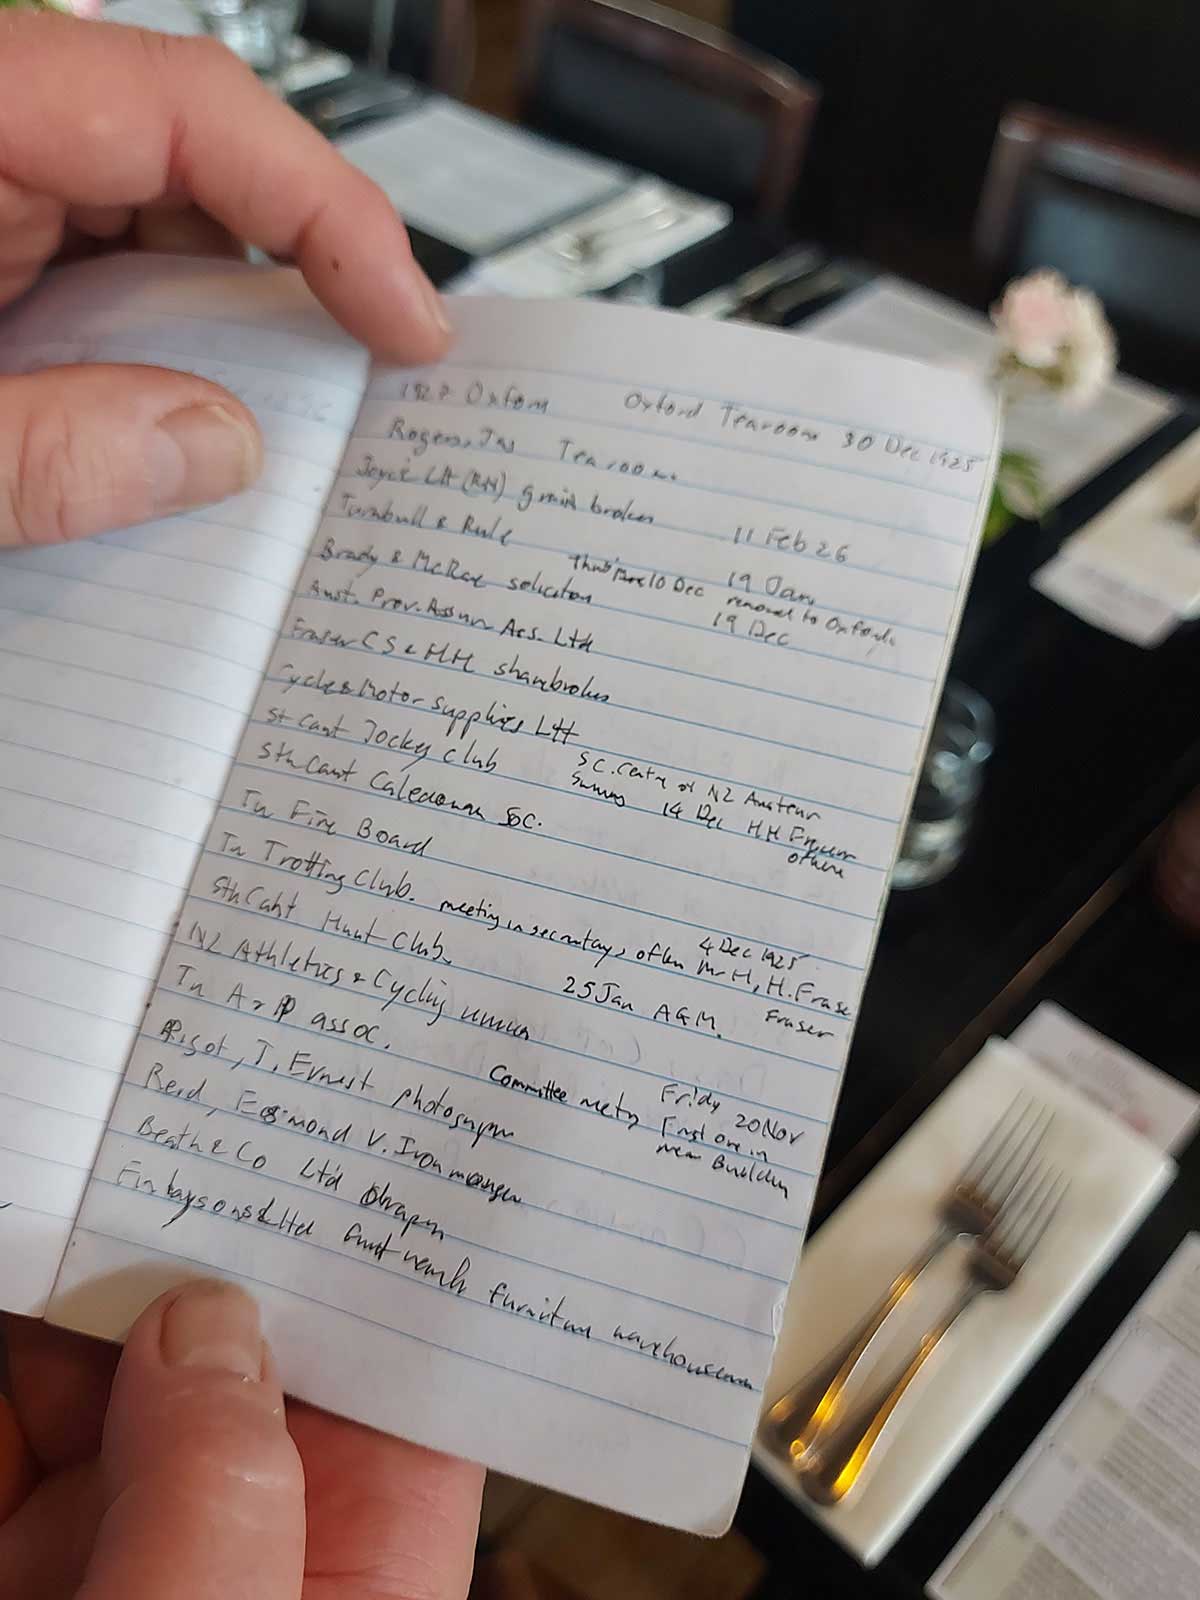 1927 Oxford Oxford Tearoom 30 Dec 1925
Rogers, Jas Tearooms
Joyce LA (RN) grain broker 11 Feb 26
Turnbull & Rule 19 Jan
Brady & McRae solicitors 10 Dec removed to Oxford
Aust. Prov. Assur Ass. Ltd 19 Dec
Fraser CS & HH sharebroker
Cycle & Motor Supplies Ltd
St Cant Jockey club S C. Centre of NZ Amateur
Sth Cant Caledonian Soc. Swimng 14 Dec H H Fraser
Tu Fire Board others
Tu Trotting Club. meeting in secretary's often Mr H, H. Frase
4 Dec 1925
Sth Cant Hunt Club. 25 Jan AGM. Fraser
NZ Athletics & Cycling union
Tu A & P assoc. Committee meting Friday 20 Nov
First one in
new Building
Rigot, T. Ernest photographer
Reid, Esmond V. Ironmonger
Beath & Co Ltd Drapers
Finlayson & Ltd furniture warehouseman